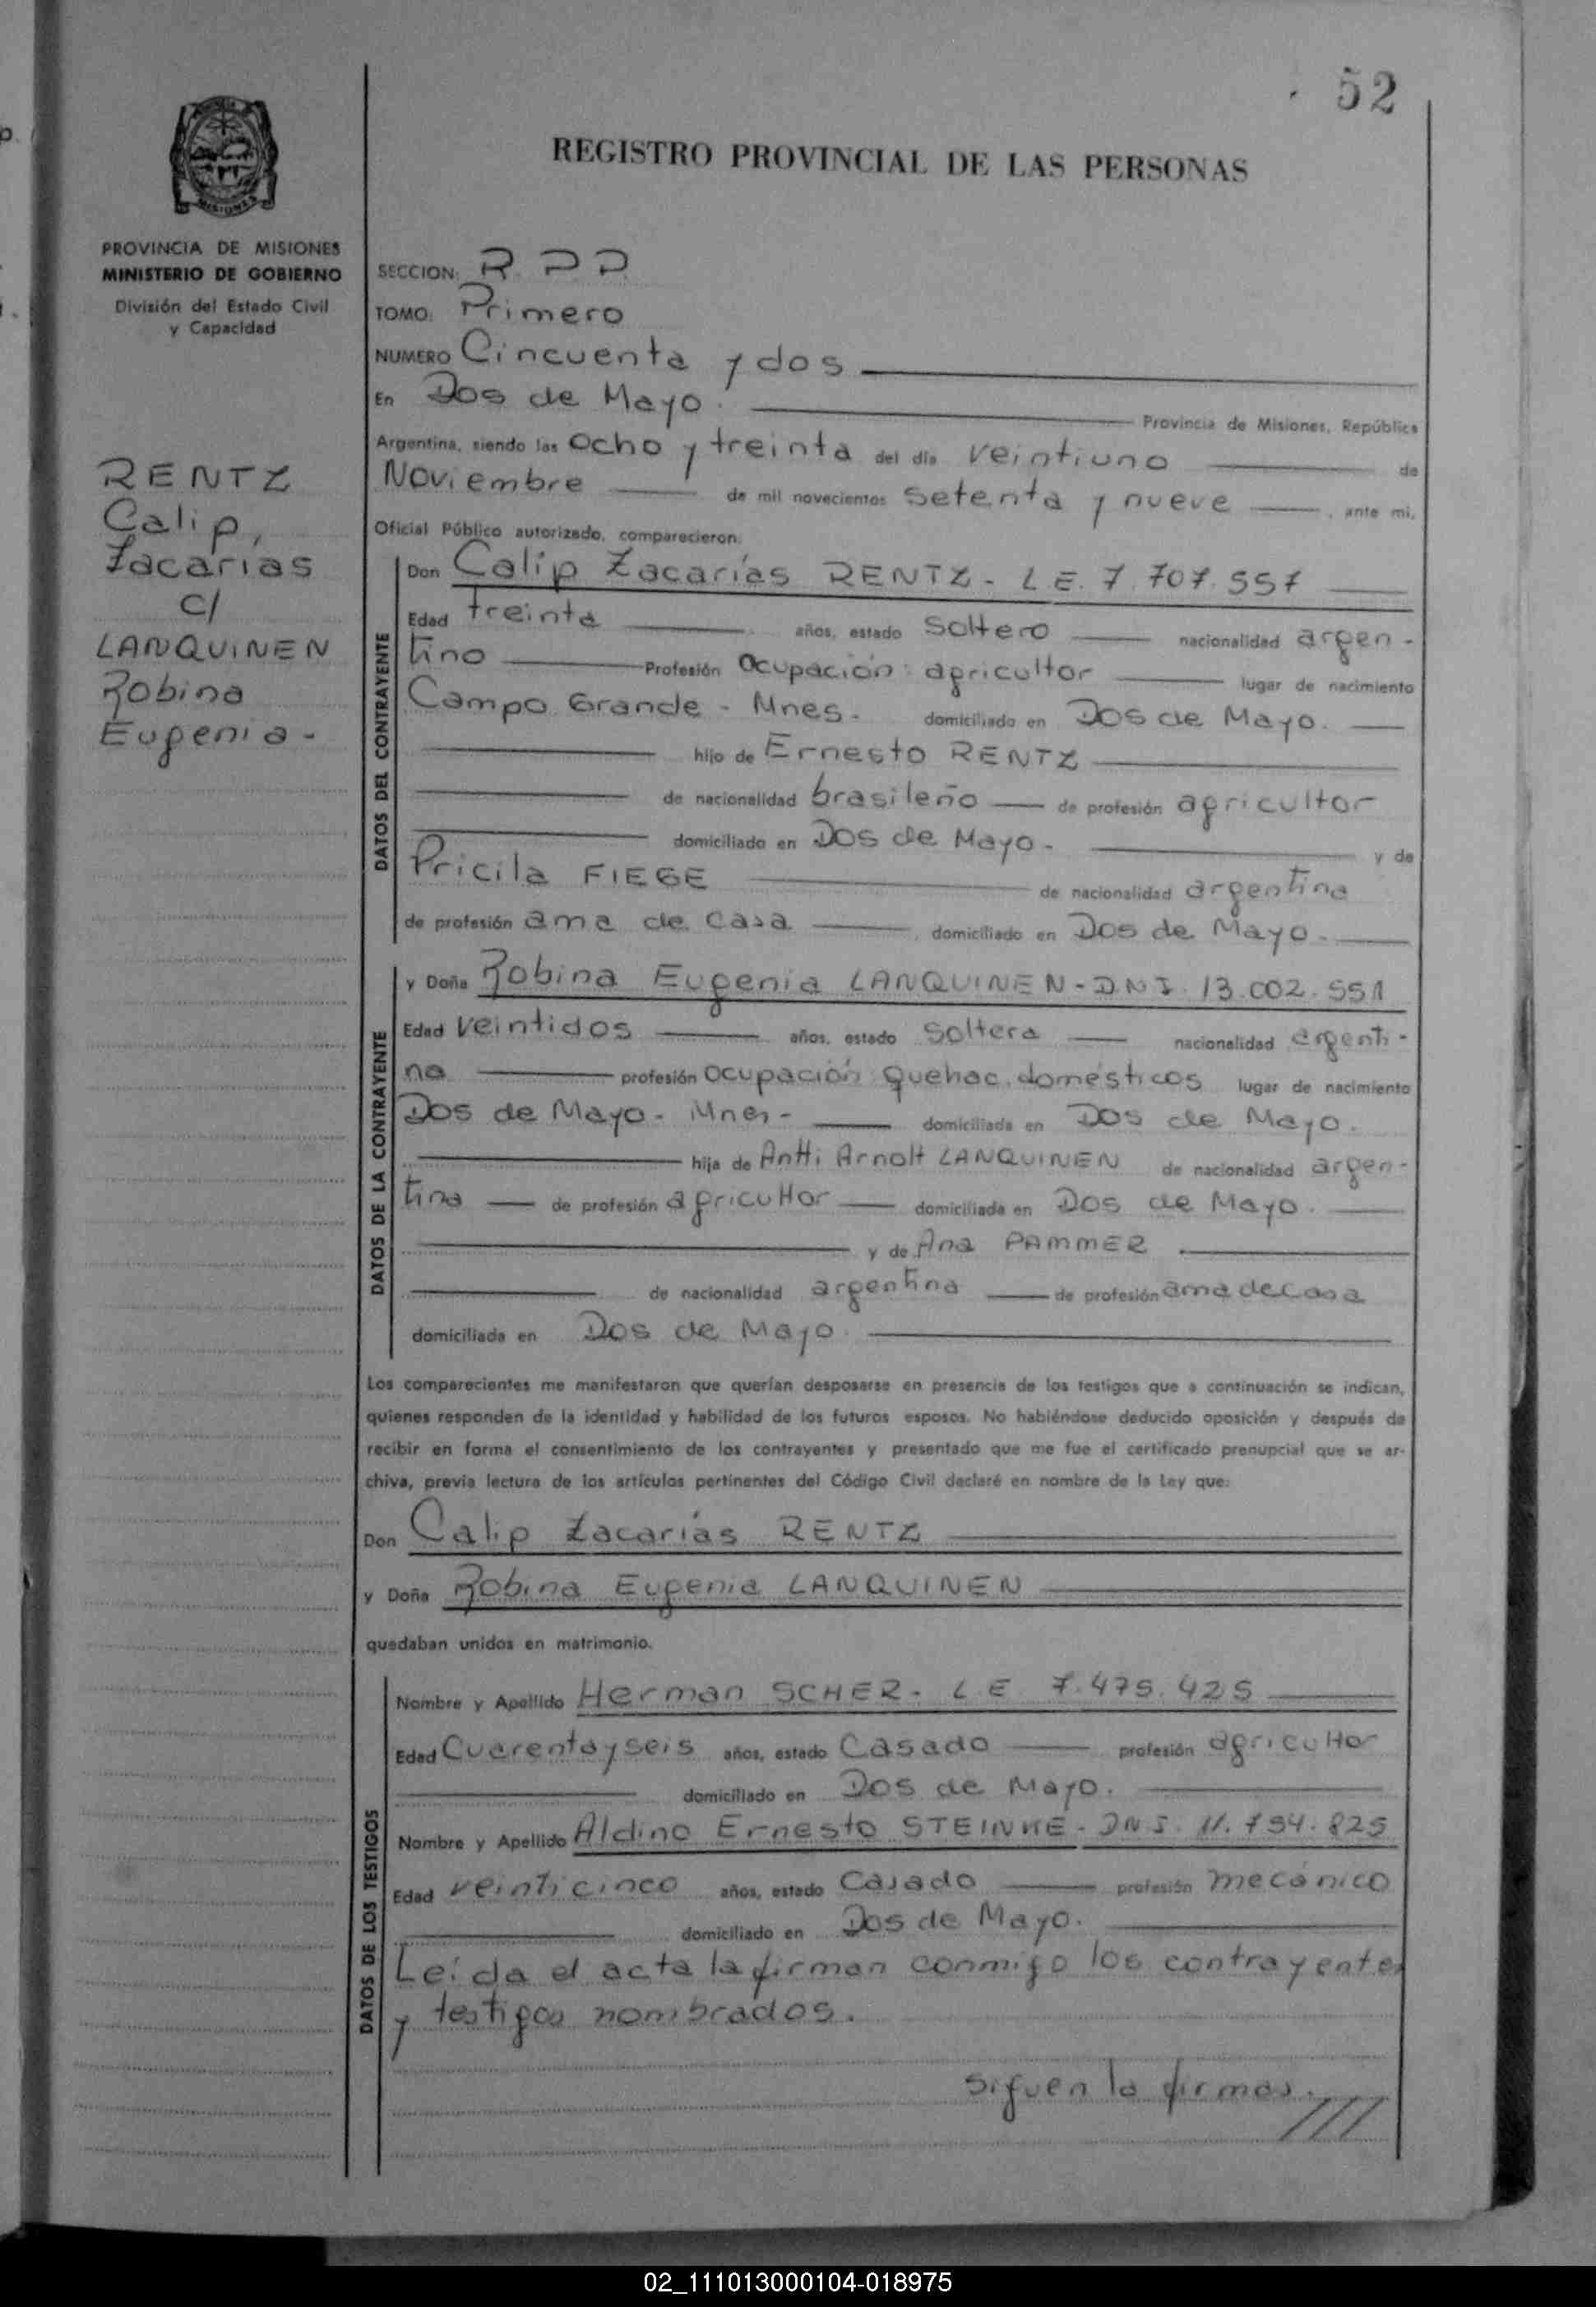 52
REGISTRO PROVINCIAL DE LAS PERSONAS
MISIONES
PROVINCIA DE MISIONES
MINISTERIO DE GOBIERNO
División del Estado Civil
y Capacidad
RENTZ
Calip,
Zacarías
c/
LANQUINEN
Robina
Eugenia-
SECCION: R.P.P.
TOMO: Primero
NUMERO Cincuenta y dos
En Dos de Mayo. Provincia de Misiones, República
Argentina, siendo las Ocho y treinta del día veintiuno de
Noviembre de mil novecientos setenta y nueve, ante mi,
Oficial Público autorizado, comparecieron:
DATOS DEL CONTRAYENTE
Don Calip Zacarías RENTZ - L E. 7.707.557
Edad treinta años, estado soltero nacionalidad argen-
tino Profesión Ocupación: agricultor lugar de nacimiento
Campo Grande - Mnes. domiciliado en Dos de Mayo.
hijo de Ernesto RENTZ
de nacionalidad brasileño de profesión agricultor
domiciliado en Dos de Mayo - y de
Pricila FIEGE de nacionalidad argentina
de profesión ama de casa domiciliado en Dos de Mayo.
DATOS DE LA CONTRAYENTE
y Doña Robina Eugenia LANQUINEN - DNI. 13.002.551
Edad veintidos años, estado soltera nacionalidad argenti-
na profesión Ocupación: quehac. domésticos lugar de nacimiento
Dos de Mayo - Mnes - domiciliada en Dos de Mayo.
hija de Antti Arnolt LANQUINEN de nacionalidad argen-
tina de profesión agricultor domiciliada en Dos de Mayo.
y de Ana PAMMER
de nacionalidad argentina de profesión ama de casa
domiciliada en Dos de Mayo.
Los comparecientes me manifestaron que querían desposarse en presencia de los testigos que a continuación se indican,
quienes responden de la identidad y habilidad de los futuros esposos. No habiéndose deducido oposición y después de
recibir en forma el consentimiento de los contrayentes y presentado que me fue el certificado prenupcial que se ar-
chiva, previa lectura de los artículos pertinentes del Código Civil declaré en nombre de la Ley que:
Don Calip Zacarías RENTZ
y Doña Robina Eugenia LANQUINEN
quedaban unidos en matrimonio.
DATOS DE LOS TESTIGOS
Nombre y Apellido Herman SCHER - L E 7.475.425
Edad Cuarenta y seis años, estado Casado profesión agricultor
domiciliado en Dos de Mayo.
Nombre y Apellido Aldino Ernesto STEINKE - DNI. 11.794.825
Edad veinticinco años, estado Casado profesión mecánico
domiciliado en Dos de Mayo.
Leída el acta la firman conmigo los contrayentes
y testigos nombrados.
siguen la firmas.///
02_111013000104-018975